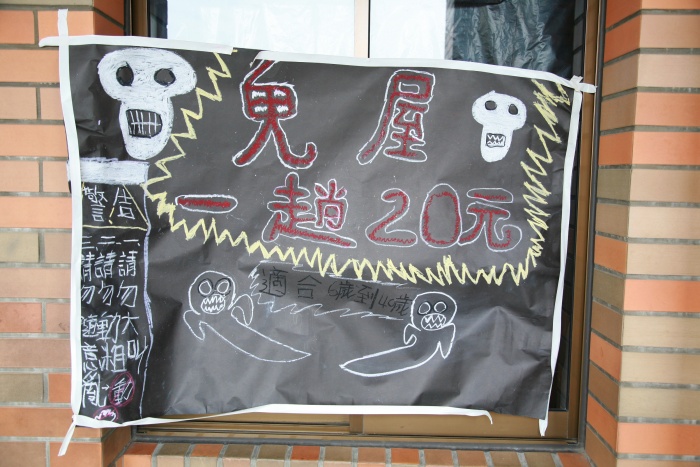 鬼屋
一趟20元
適合6歲到46歲
警告
一請勿大叫
二請勿動粗
三請勿隨意亂動